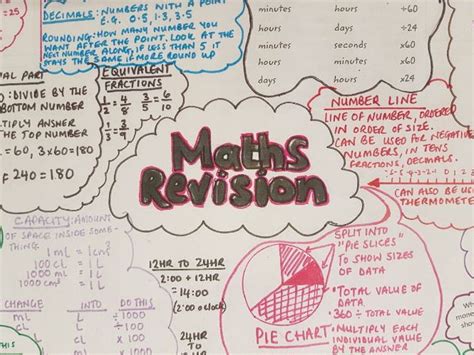 =25
DECIMALS: NUMBERS WITH A POINT
E.G. 0.5, 1.3, 3.5
ROUNDING: HOW MANY NUMBER YOU
WANT AFTER THE POINT. LOOK AT THE
NEXT NUMBER ALONG, IF LESS THAN 5 IT
STAYS THE SAME IF MORE ROUND UP
minutes hours ÷60
hours days ÷24
minutes seconds x60
hours minutes x60
days hours x24
AL PART
O: DIVIDE BY THE
BOTTOM NUMBER
TIPLY ANSWER
THE TOP NUMBER
= 60, 3x60=180
F 240 = 180
EQUIVALENT
FRACTIONS
1/2 = 4/8 3/5 = 6/10
1/3 = 3/9
Maths
Revision
NUMBER LINE
LINE OF NUMBER, ORDERED
IN ORDER OF SIZE.
CAN BE USED FOR NEGATIVE
NUMBERS, IN TENS
FRACTIONS, DECIMALS.
CAN ALSO BE
THERMOMETE
CAPACITY: AMOUNT
OF SPACE INSIDE SOME-
THING.
1mL = 1cm³
100 cL = 1L
1000 mL = 1L
1000 cm³ = 1L
CHANGE INTO DO THIS
mL L ÷1000
cL L ÷100
L mL x1000
12HR TO 24HR
2:00 + 12HRE
= 14:00
24HR TO
SPLIT INTO
"PIE SLICES"
TO SHOW SIZES
OF DATA
• TOTAL VALUE OF
DATA
• 360 ÷ TOTAL VALUE
• MULTIPLY EACH
INDIVIDUAL VALUE
BY THE ANSWER
PIE CHART
THIS